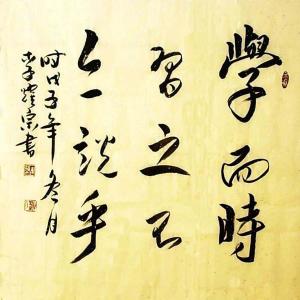 學而時
習之不
亦說乎
时戊子年冬月
李燿宗書